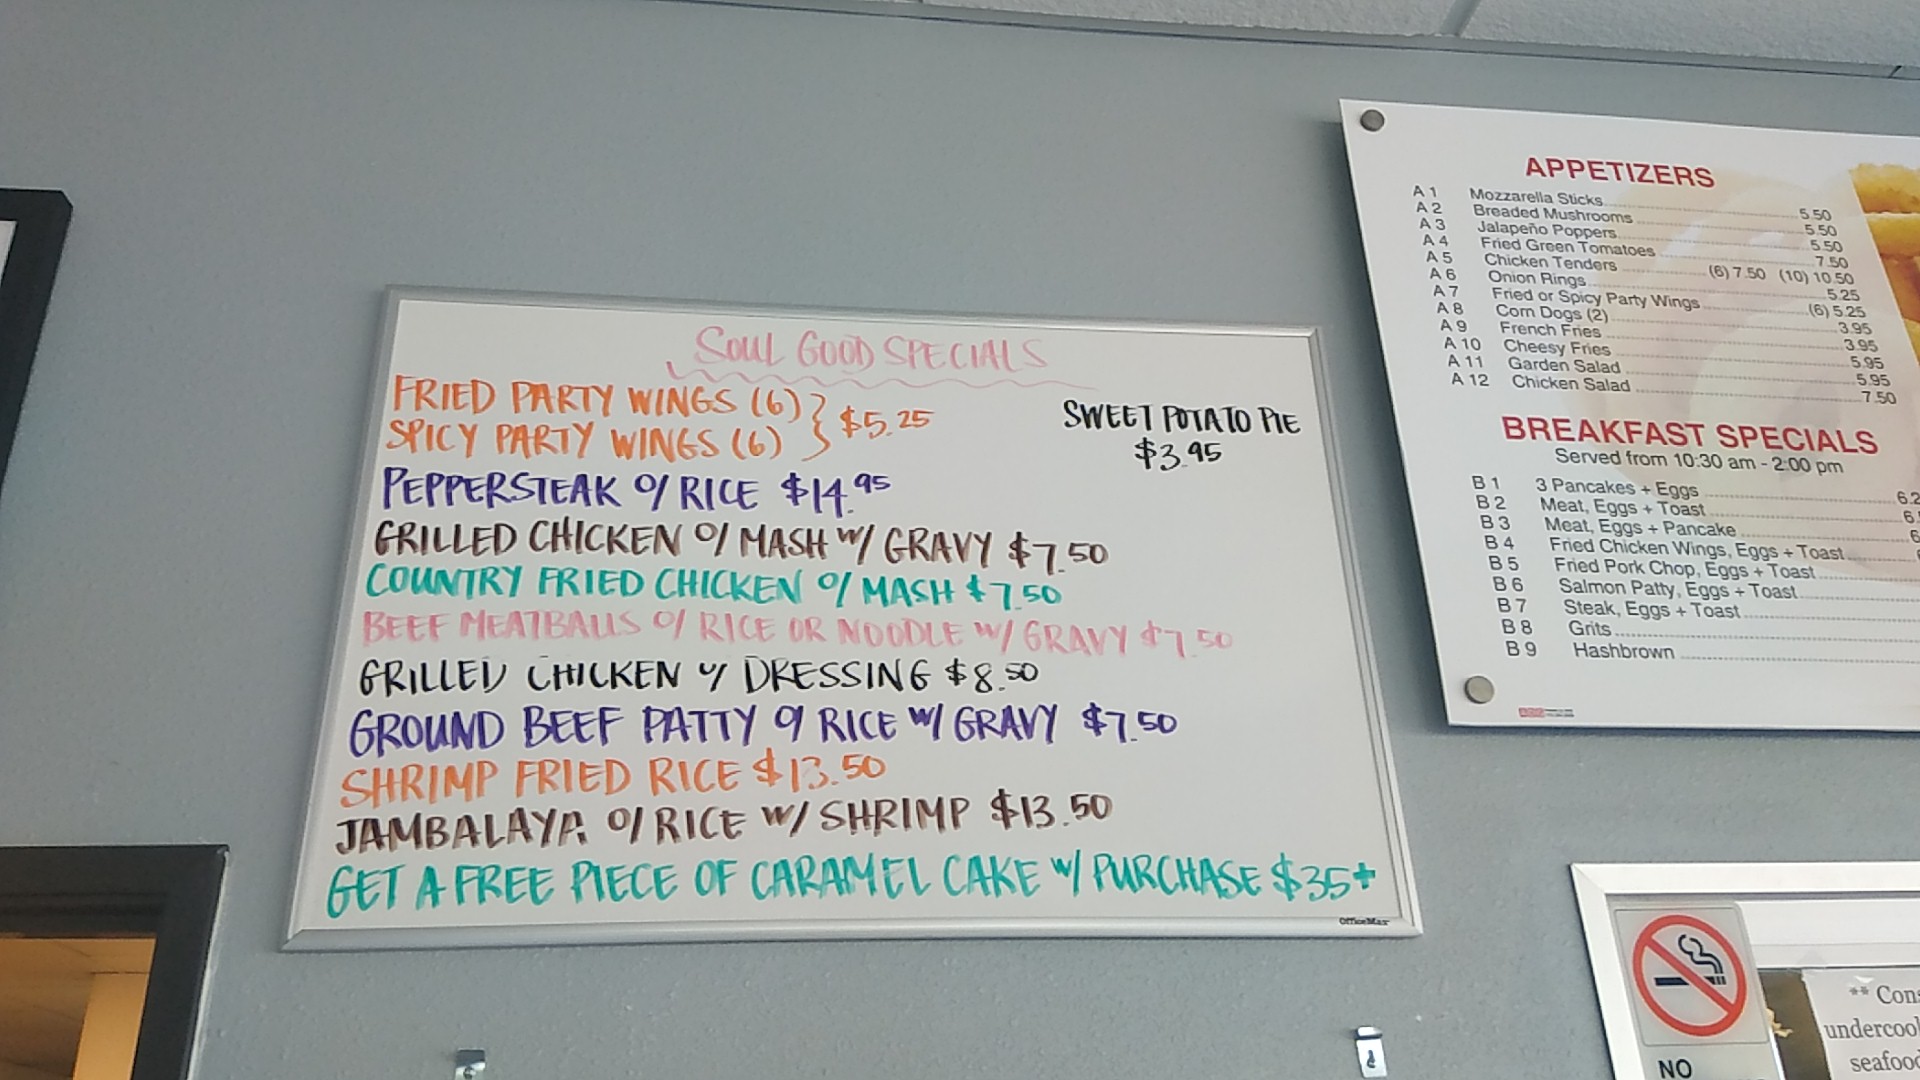 SOUL GOOD SPECIALS
FRIED PARTY WINGS (6)
SPICY PARTY WINGS (6) } $5.25
PEPPERSTEAK O/ RICE $14.95
GRILLED CHICKEN O/ MASH W/ GRAVY $7.50
COUNTRY FRIED CHICKEN O/ MASH $7.50
BEEF MEATBALLS O/ RICE OR NOODLE W/ GRAVY $7.50
GRILLED CHICKEN W/ DRESSING $8.50
GROUND BEEF PATTY O/ RICE W/ GRAVY $7.50
SHRIMP FRIED RICE $13.50
JAMBALAYA O/ RICE W/ SHRIMP $13.50
GET A FREE PIECE OF CARAMEL CAKE W/ PURCHASE $35+
SWEET POTATO PIE
$3.95
OfficeMax
APPETIZERS
A 1 Mozzarella Sticks 5.50
A 2 Breaded Mushrooms 5.50
A 3 Jalapeño Poppers 5.50
A 4 Fried Green Tomatoes 7.50
A 5 Chicken Tenders (6) 7.50 (10) 10.50
A 6 Onion Rings 5.25
A 7 Fried or Spicy Party Wings (6) 5.25
A 8 Corn Dogs (2) 3.95
A 9 French Fries 3.95
A 10 Cheesy Fries 5.95
A 11 Garden Salad 5.95
A 12 Chicken Salad 7.50
BREAKFAST SPECIALS
Served from 10:30 am - 2:00 pm
B 1 3 Pancakes + Eggs 6.2
B 2 Meat, Eggs + Toast 6.
B 3 Meat, Eggs + Pancake 6
B 4 Fried Chicken Wings, Eggs + Toast
B 5 Fried Pork Chop, Eggs + Toast
B 6 Salmon Patty, Eggs + Toast
B 7 Steak, Eggs + Toast
B 8 Grits
B 9 Hashbrown
NO
** Cons
undercoo
seafoo